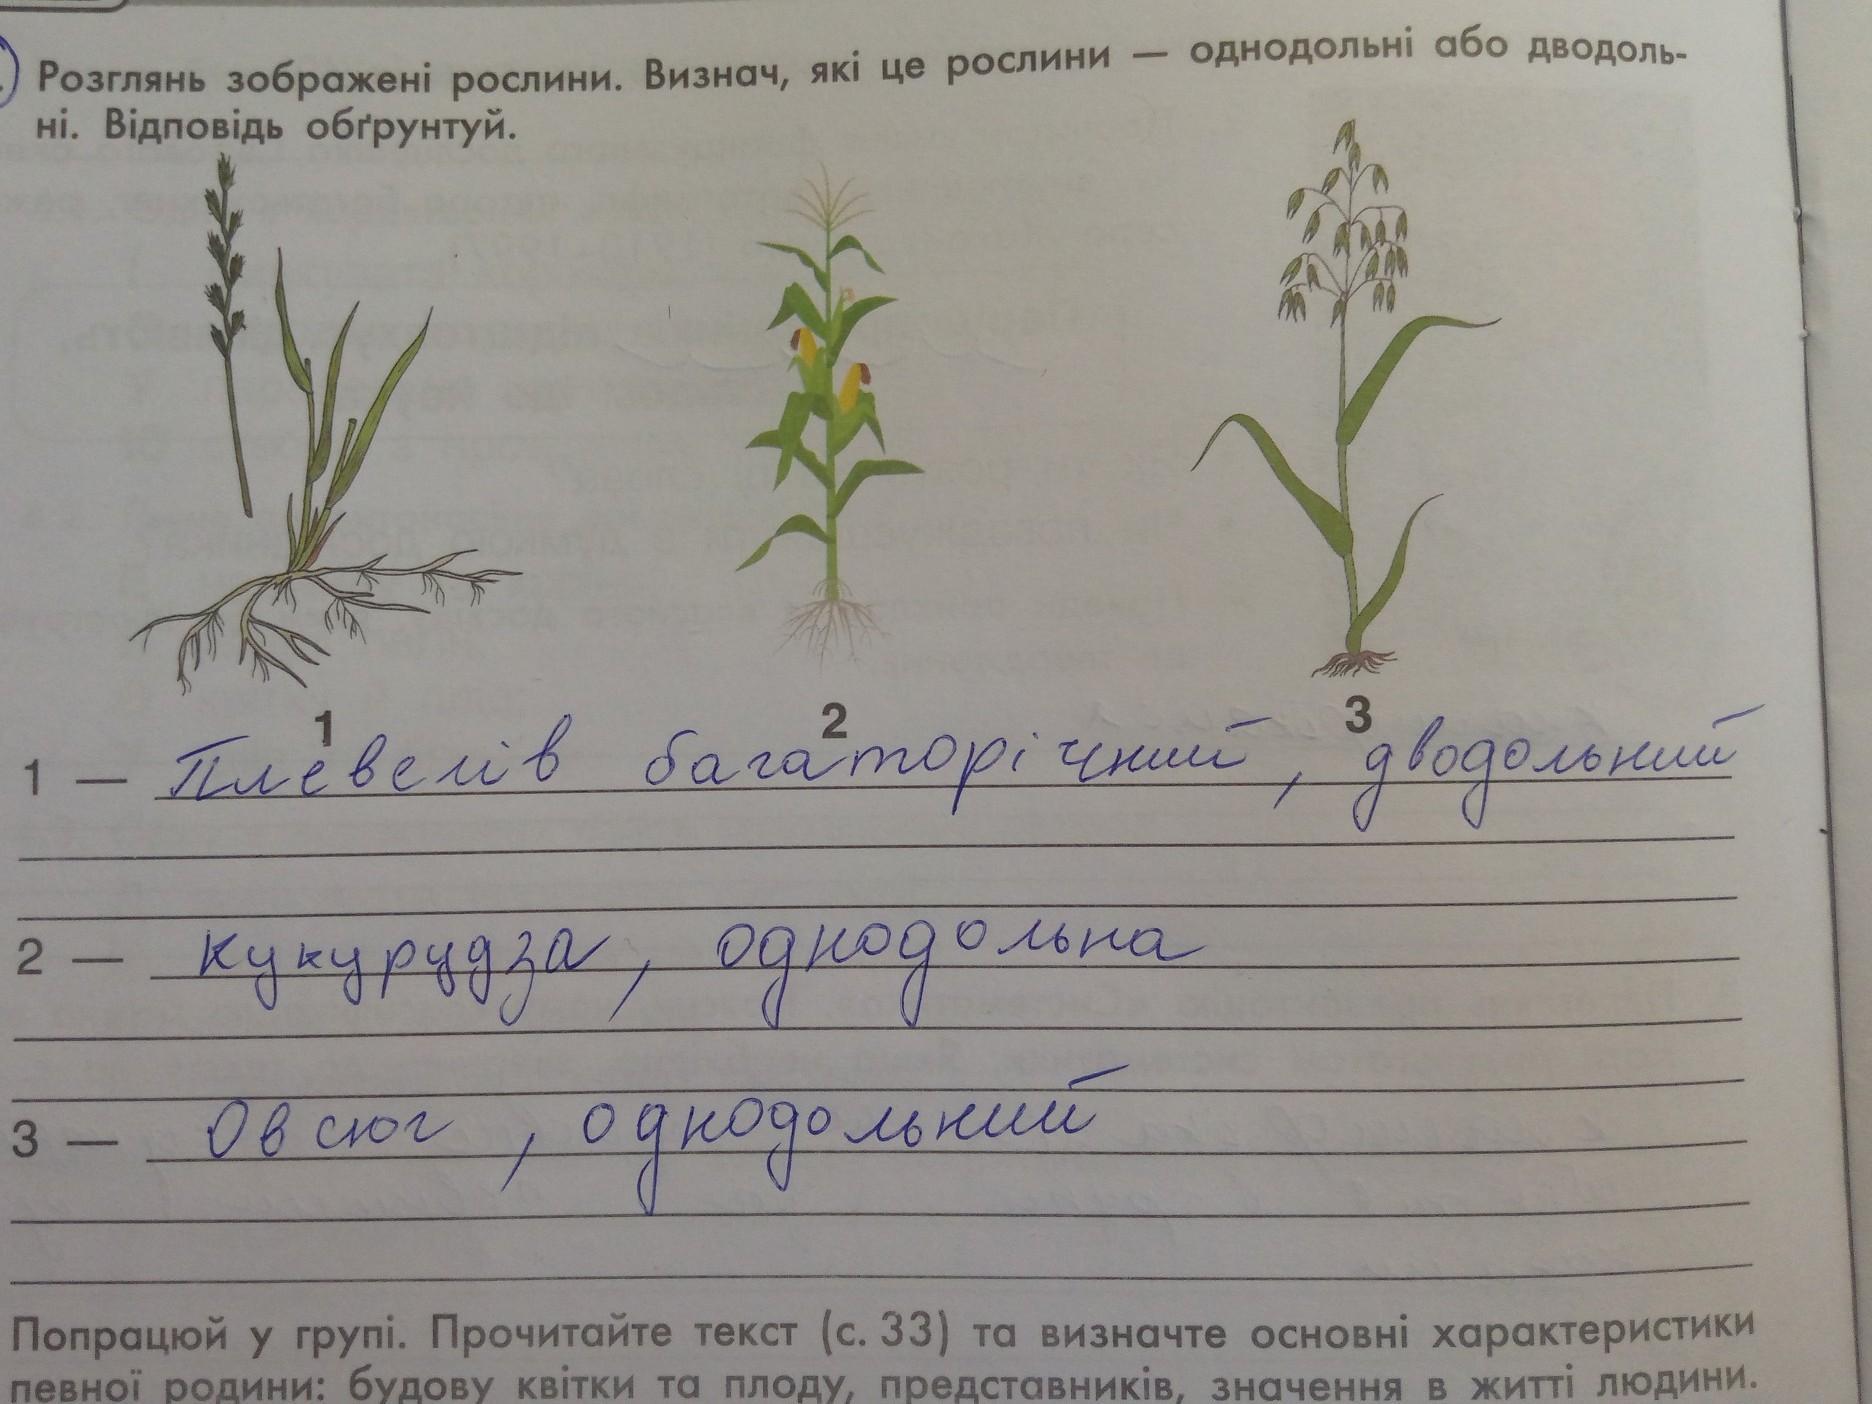 Розглянь зображені рослини. Визнач, які це рослини — однодольні або дводоль-
ні. Відповідь обґрунтуй.
1 2 3
1 — Плевелів багаторічний, дводольний
2 — кукурудза, однодольна
3 — Овсюг, однодольний
Попрацюй у групі. Прочитайте текст (с. 33) та визначте основні характеристики
певної родини: будову квітки та плоду, представників, значення в житті людини.